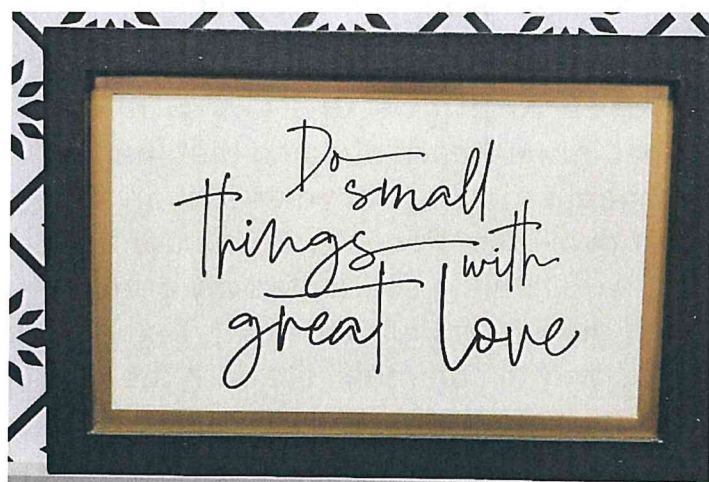 Do
small
things with
great love